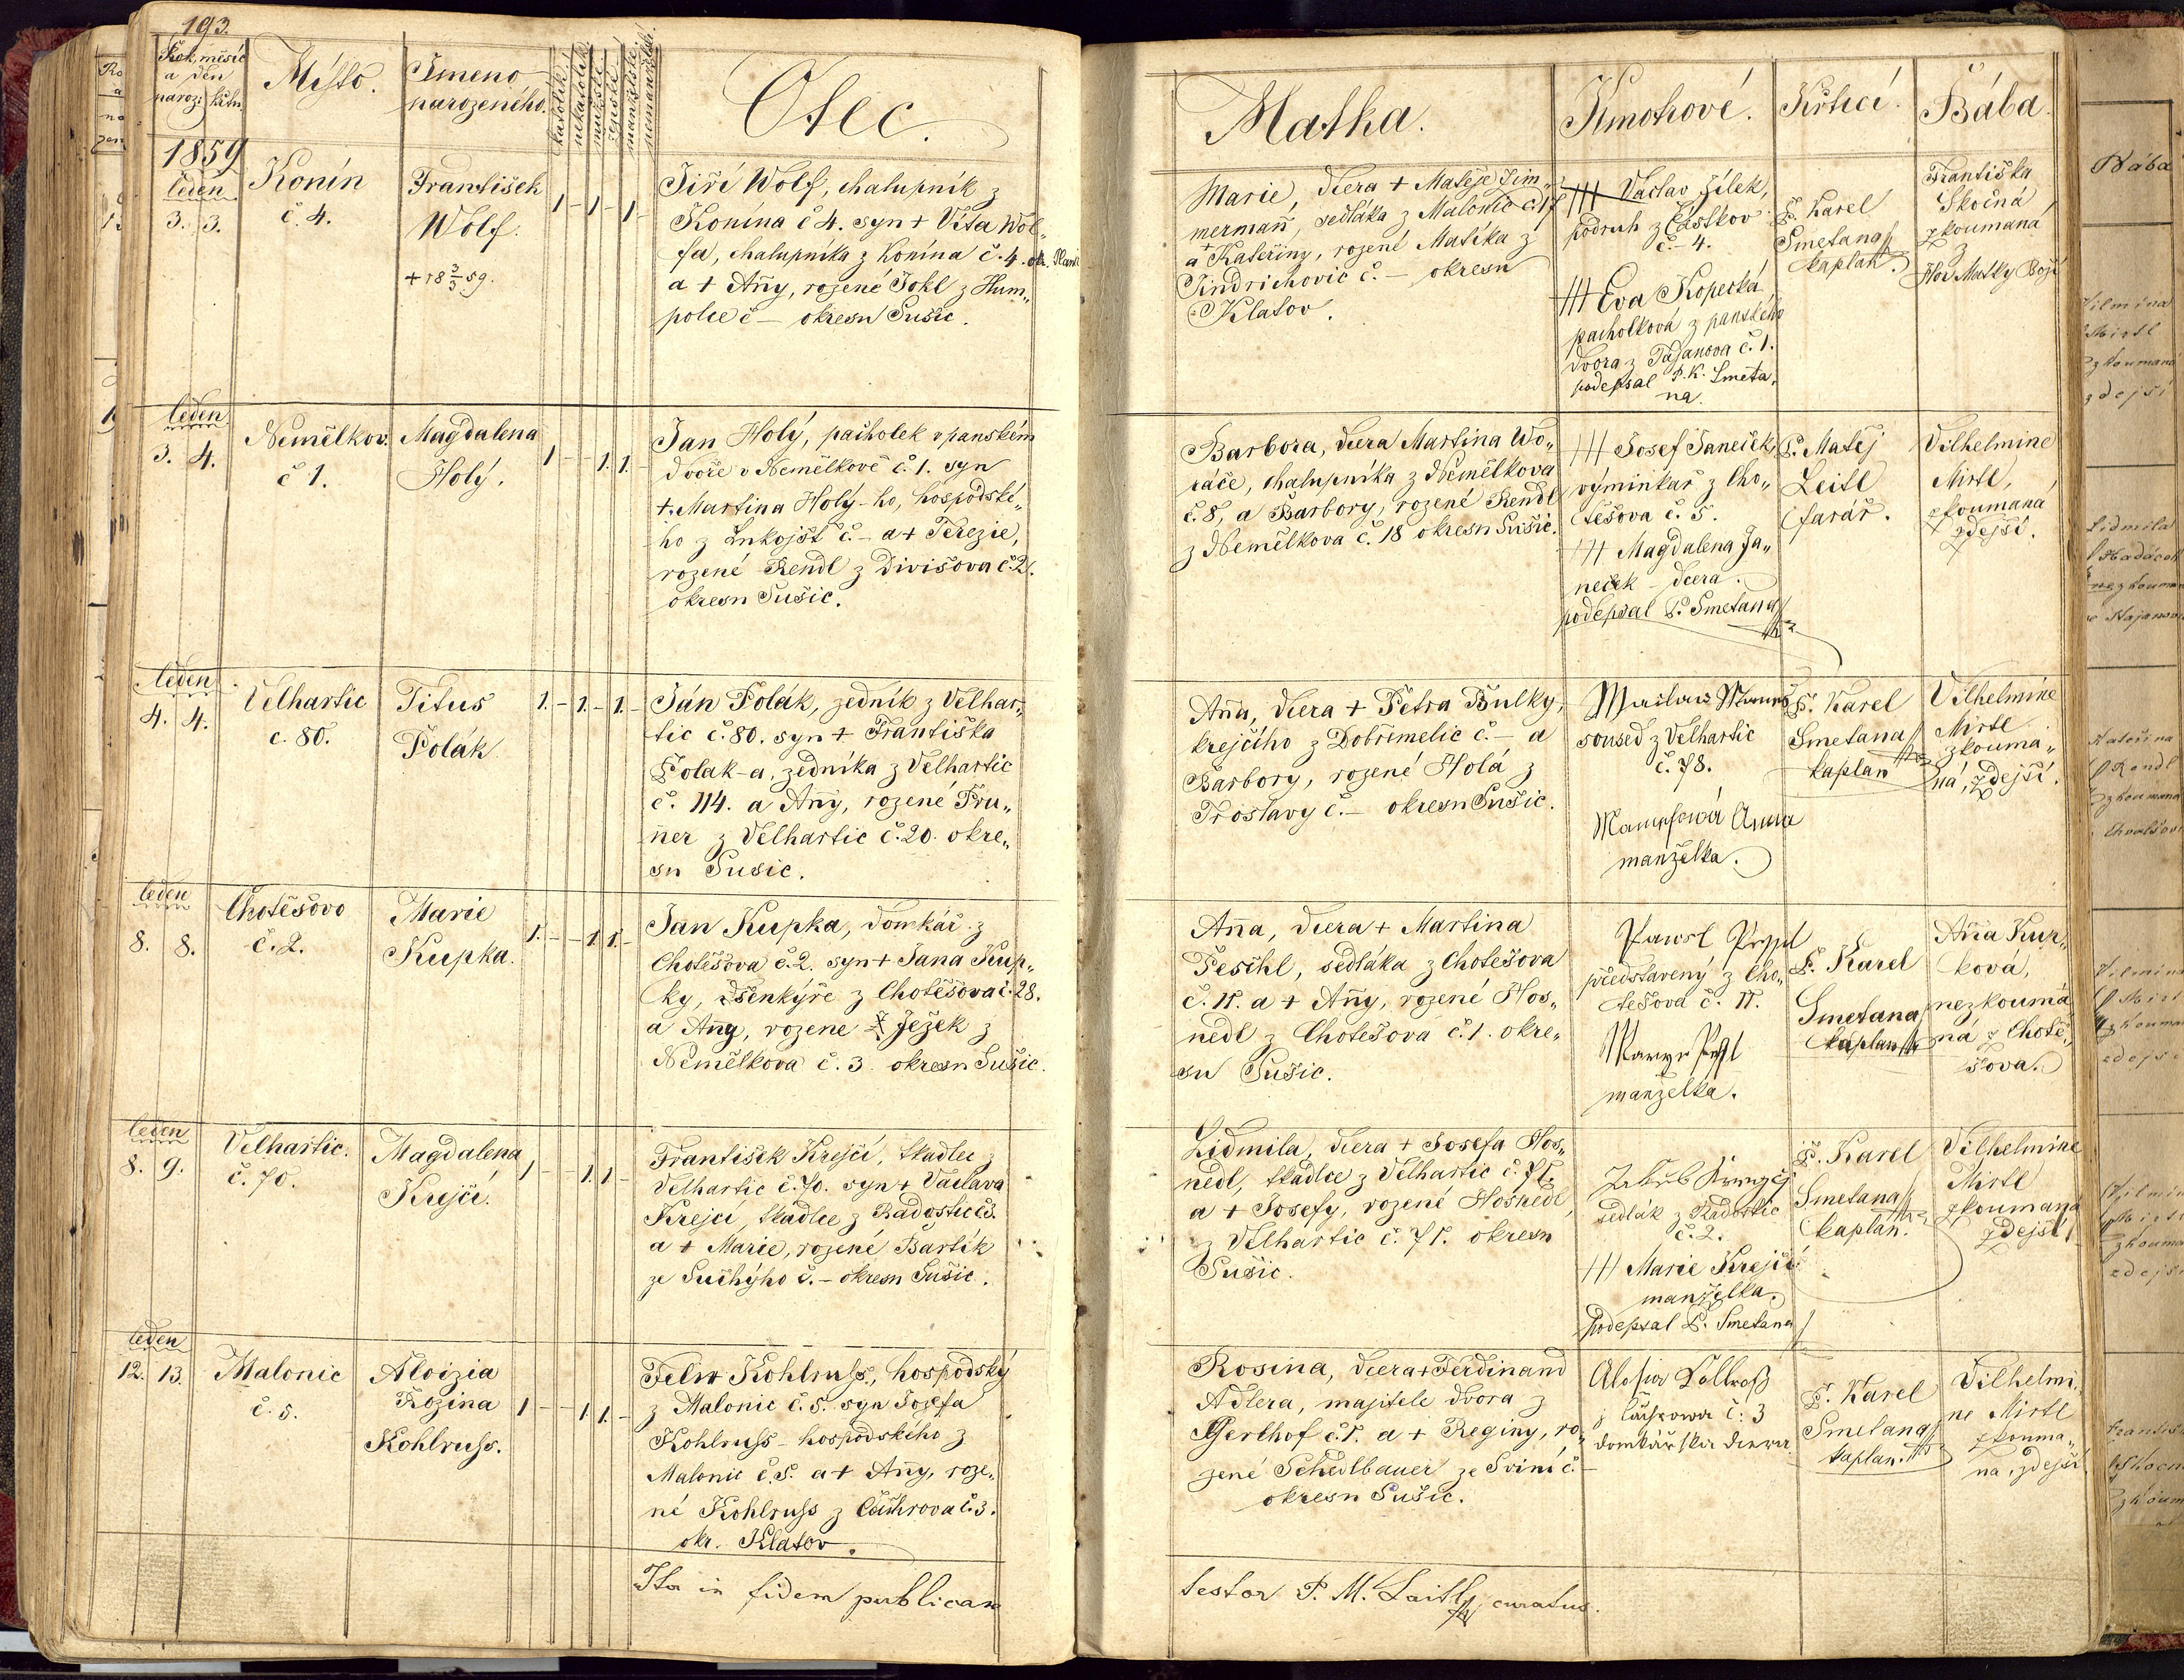 193.
Rok, měsíc
a den
naroz: křtu
Místo.
Jmeno
narozeného.
katolík
nekatolík
mužské
ženské
manželské
nemanželské
Otec.
Matka.
Kmotrové.
Křtící.
Bába.
1859
leden
3. 3.
Konín
č. 4.
František
Wolf.
+ 18 3/3 59.
1 - 1 - 1 -
Jiří Wolf, chalupník z
Konína č 4. syn + Víta Wol„
fa, chalupníka z Konína č. 4. okr. Plani
a + Anny, rozené Tokl z Hum„
polce č – okresu Sušic.
Marie, dcera + Matěje Zim„
mermann, sedláka z Malonic č. 17
a + Kateřiny, rozené Matěka z
Jindrichovic č. – okresu
Klatov.
+++ Vaclav Jílek,
podruh z Částkov
č. – 4.
+++ Eva Kopecká
pacholková z panského
dvora z Tajanova č. 1.
podepsal P. K. Smeta„
na.
P. Karel
Smetana
kaplan.
Františka
Skočná
zkoumaná
z
Hor Matky Boží
leden
3. 4.
Nemělkov.
č 1.
Magdalena
Holý.
1 - - 1. 1. -
Jan Holý, pacholek v panském
dvoře v Nemělkově č. 1. syn
+. Martina Holý-ho, hospodské„
ho z Lukojšť č. – a + Terezie,
rozené Rendl z Divišova č. 2.
okresu Sušic.
Barbora, dcera Martina Wo„
ráče, chalupníka z Nemělkova
č. 8, a Barbory, rozené Rendl
z Nemělkova č. 18 okresu Sušic.
+++ Josef Janeček,
výminkář z Cho„
těšova č. 5.
+++ Magdalena Ja„
neček – dcera.
podepsal P. Smetana
P. Matěj
Leitl
farář.
Vilhelmine
Mirtl,
zkoumaná
zdejší.
leden
4. 4.
Velhartic
č. 80.
Titus
Polák
1. - 1. - 1. -
Ján Polák, zedník z Velhar„
tic č. 80. syn + Františka
Polak-a, zedníka z Velhartic
č. 114. a Anny, rozené Pru„
ner z Velhartic č. 20. okre„
su Susic.
Anna, dcera + Petra Bulky,
krejčího z Dobřemelic č. – a
Barbory, rozené Holá z
Troslavy č. – okresu Sušic.
soused z Velhartic
č. 78.
Anna
manželka.
P. Karel
Smetana
kaplan
Vilhelmine
Mirtl
zkouma„
ná, zdejší.
leden
8. 8.
Chotěšovo
č. 2.
Marie
Kupka.
1. - - 1. 1. -
Jan Kupka, domkář z
Chotěšova č. 2. syn + Jana Kup„
ky, šenkýře z Chotěšova č. 28.
a Anny, rozene Ježek z
Nemělkova č. 3. okresu Sušic.
Anna, dcera + Martina
Peschl, sedláka z Chotěšova
č. 11. a + Anny, rozené Hos„
nedl z Chotešova č. 1. okre„
su Sušic.
představený z Cho„
tešova č. 11.
manželka.
P. Karel
Smetana
kaplan
Anna Kur„
ková,
nezkouma
ná z Chotě„
šova.
leden
8. 9.
Velhartic.
č. 70.
Magdalena
Krejčí.
1 - - 1. 1 -
František Krejčí, tkadlec z
Velhartic č. 70. syn + Vaclava
Krejčí, tkadlce z Radostic č 3.
a + Marie, rozené Bartík
ze Suchýho č. – okresu Sušic.
Lidmila, dcera + Josefa Hos„
nedl, tkadlce z Velhartic č. 71.
a + Josefy, rozené Hosnedl,
z Velhartic č. 71. okresu
Sušic.
sedlák z Radostic
č. 2.
+++ Marie Krejčí
manželka.
podepsal P. Smetana
P. Karel
Smetana
kaplan.
Vilhelmine
Mirtl
zkoumaná
zdejší
leden
12. 13.
Malonic
č. 5.
Aloizia
Rozina
Kohlruss.
1 - - 1 1. -
Felix Kohlruss, hospodský
z Malonic č. 5. syn Jozefa
Kohlruss – hospodského z
Malonic č. 5. a + Anny, roze„
né Kohlruss z Čachrova č. 3.
okr. Klatov.
Rosina, dcera + Ferdinand
Adlera, majitele dvora z
Gerlhof č. 1. a + Reginy, ro„
zené Schedlbauer ze Svini č. –
okresu Sušic.
Aloisia Kollroß
z Čachrowa č: 3
domkářska dcera
P. Karel
Smetana
kaplan.
Vilhelmi„
ne Mirtl
zkouma„
na, zdejší
Ita in fidem publicam
testor P. M. Laitl curatus.